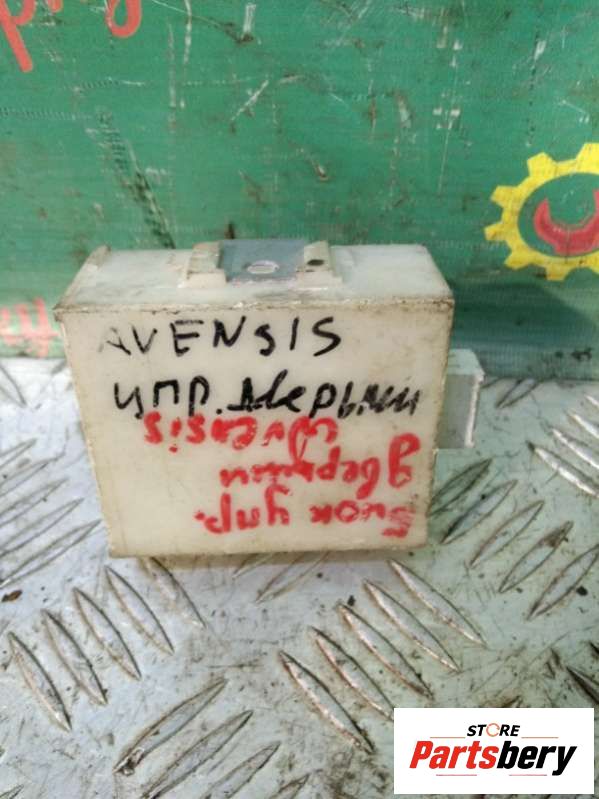 AVENSIS
упр. дверьми
Блок упр.
дверьми
avensis
STORE
Partsbery